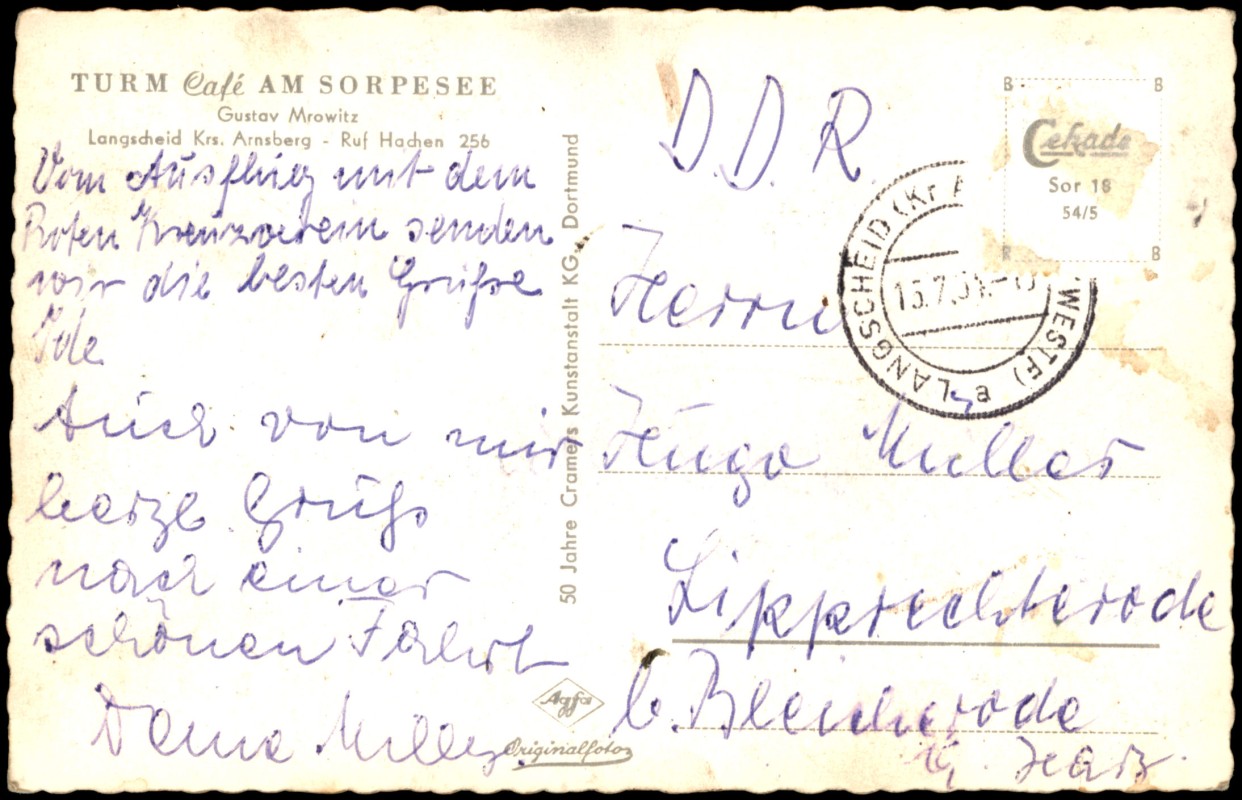 TURM Café AM SORPESEE
Gustav Mrowitz
Langscheid Krs. Arnsberg - Ruf Hachen 256
Vom Ausflug mit dem
Roten Kreuzverein senden
wir die besten Grüße
Ida
Auch von mir
herzl Gruß
nach einer
schönen Fahrt
Müller
50 Jahre Cramers Kunstanstalt KG., Dortmund
Agfa
Originalfoto
D.D.R.
B B
Cekade
Sor 18
54/5
R B
LANGSCHEID (Kr WESTF) a
Herrn
Hugo Müller
Lipprechterode
b. Bleicherode
Harz